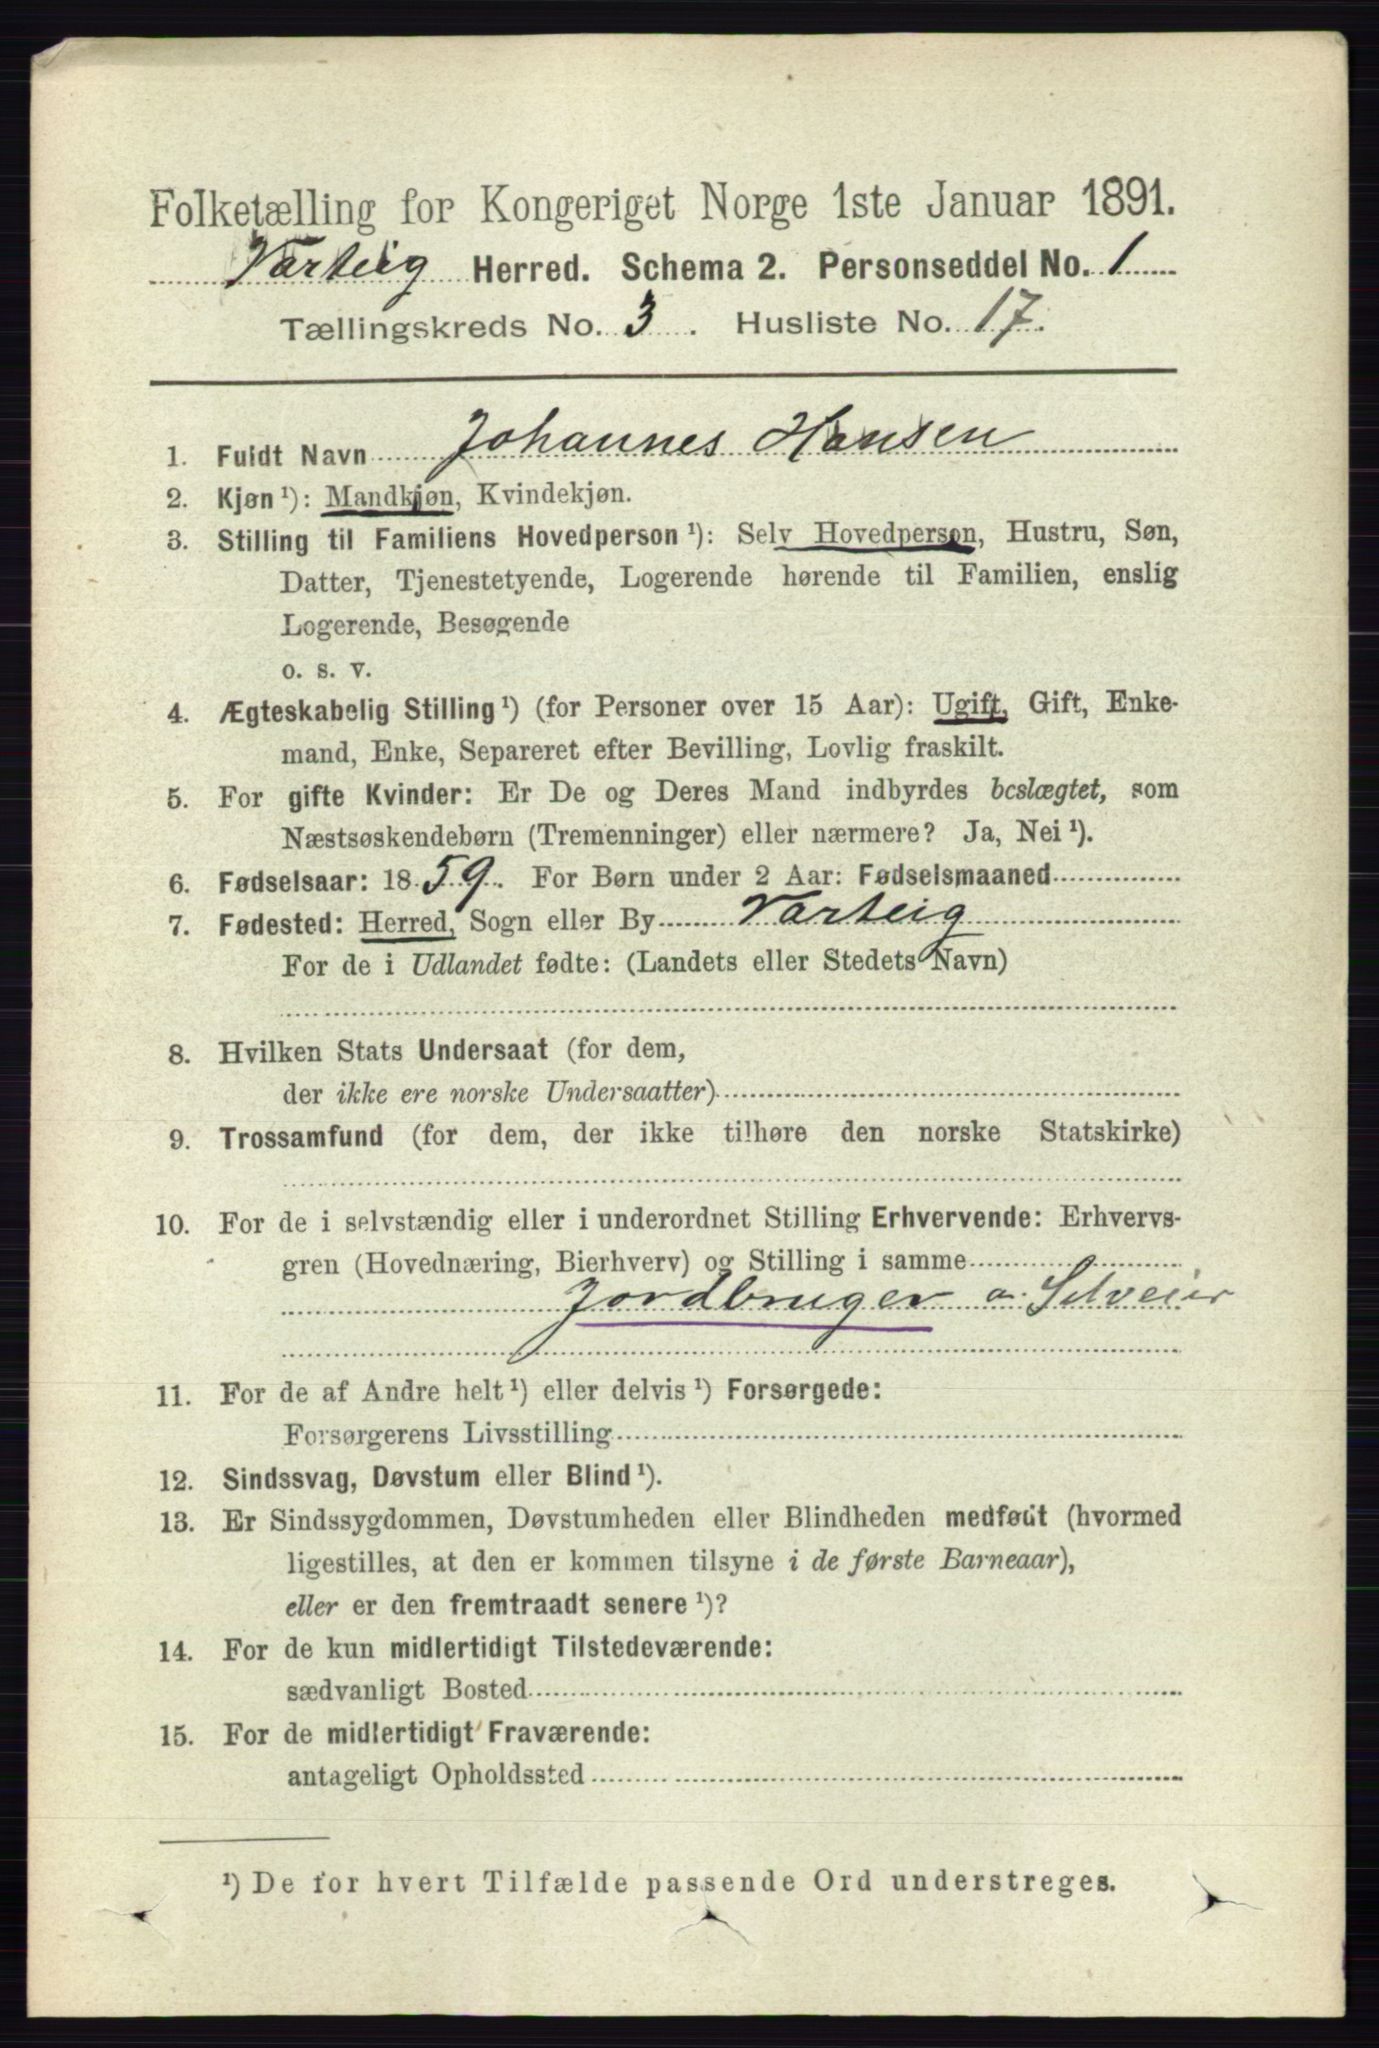 Folketælling for Kongeriget Norge 1ste Januar 1891.
Varteig Herred. Schema 2. Personseddel No. 1
Tællingskreds No. 3. Husliste No. 17.
1. Fuldt Navn Johannes Hansen
2. Kjøn ¹): Mandkjøn, Kvindekjøn.
3. Stilling til Familiens Hovedperson ¹): Selv Hovedperson, Hustru, Søn,
Datter, Tjenestetyende, Logerende hørende til Familien, enslig
Logerende, Besøgende
o. s. v.
4. Ægteskabelig Stilling ¹) (for Personer over 15 Aar): Ugift, Gift, Enke-
mand, Enke, Separeret efter Bevilling, Lovlig fraskilt.
5. For gifte Kvinder: Er De og Deres Mand indbyrdes beslægtet, som
Næstsøskendebørn (Tremenninger) eller nærmere? Ja, Nei ¹).
6. Fødselsaar: 1859. For Børn under 2 Aar: Fødselsmaaned
7. Fødested: Herred, Sogn eller By Varteig
For de i Udlandet fødte: (Landets eller Stedets Navn)
8. Hvilken Stats Undersaat (for dem,
der ikke ere norske Undersaatter)
9. Trossamfund (for dem, der ikke tilhøre den norske Statskirke)
10. For de i selvstændig eller i underordnet Stilling Erhvervende: Erhvervs-
gren (Hovednæring, Bierhverv) og Stilling i samme
Jordbruger o. Selveier
11. For de af Andre helt ¹) eller delvis ¹) Forsørgede:
Forsørgerens Livsstilling
12. Sindssvag, Døvstum eller Blind ¹).
13. Er Sindssygdommen, Døvstumheden eller Blindheden medfødt (hvormed
ligestilles, at den er kommen tilsyne i de første Barneaar),
eller er den fremtraadt senere ¹)?
14. For de kun midlertidigt Tilstedeværende:
sædvanligt Bosted
15. For de midlertidigt Fraværende:
antageligt Opholdssted
¹) De for hvert Tilfælde passende Ord understreges.